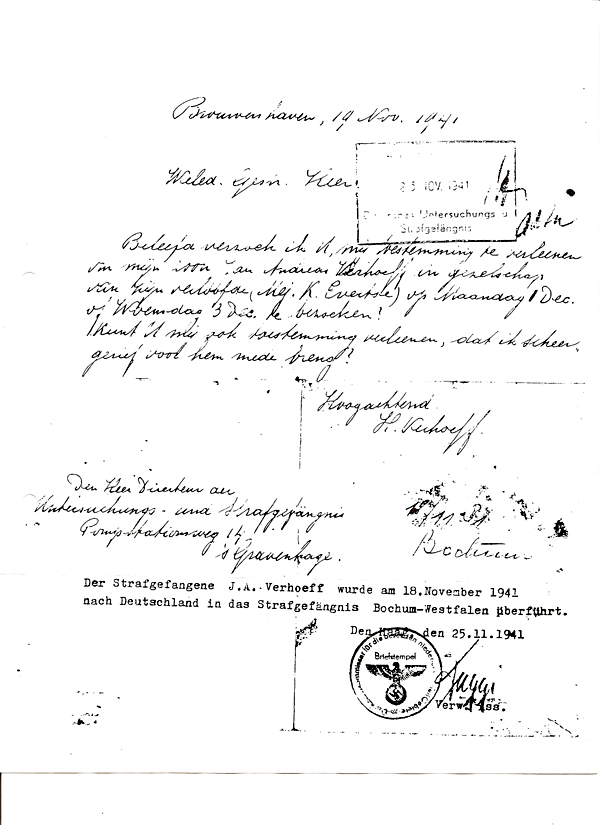 Brouwershaven, 19 Nov. 1941
Weled. Gestr. Heer!
25 NOV. 1941
Untersuchungs u
Strafgefängnis
Beleefd verzoek ik U, mij toestemming te verleenen
om mijn zoon Jan Andreas Verhoeff in gezelschap
van zijn verloofde (Mej. K. Evertse) op Maandag 1 Dec.
of Woensdag 3 Dec. te bezoeken!
Kunt U mij ook toestemming verleenen, dat ik scheer-
gerief voor hem mede breng?
Hoogachtend
H. Verhoeff.
Den Heer Directeur der
Untersuchungs- und Strafgefängnis
Pompstationsweg 14
's Gravenhage.
Bochum
Der Strafgefangene J.A. Verhoeff wurde am 18.November 1941
nach Deutschland in das Strafgefängnis Bochum-Westfalen überführt.
Den Haag, den 25.11.1941
für die besetzten niederländischen Gebiete
Briefstempel
Verw.Ass.